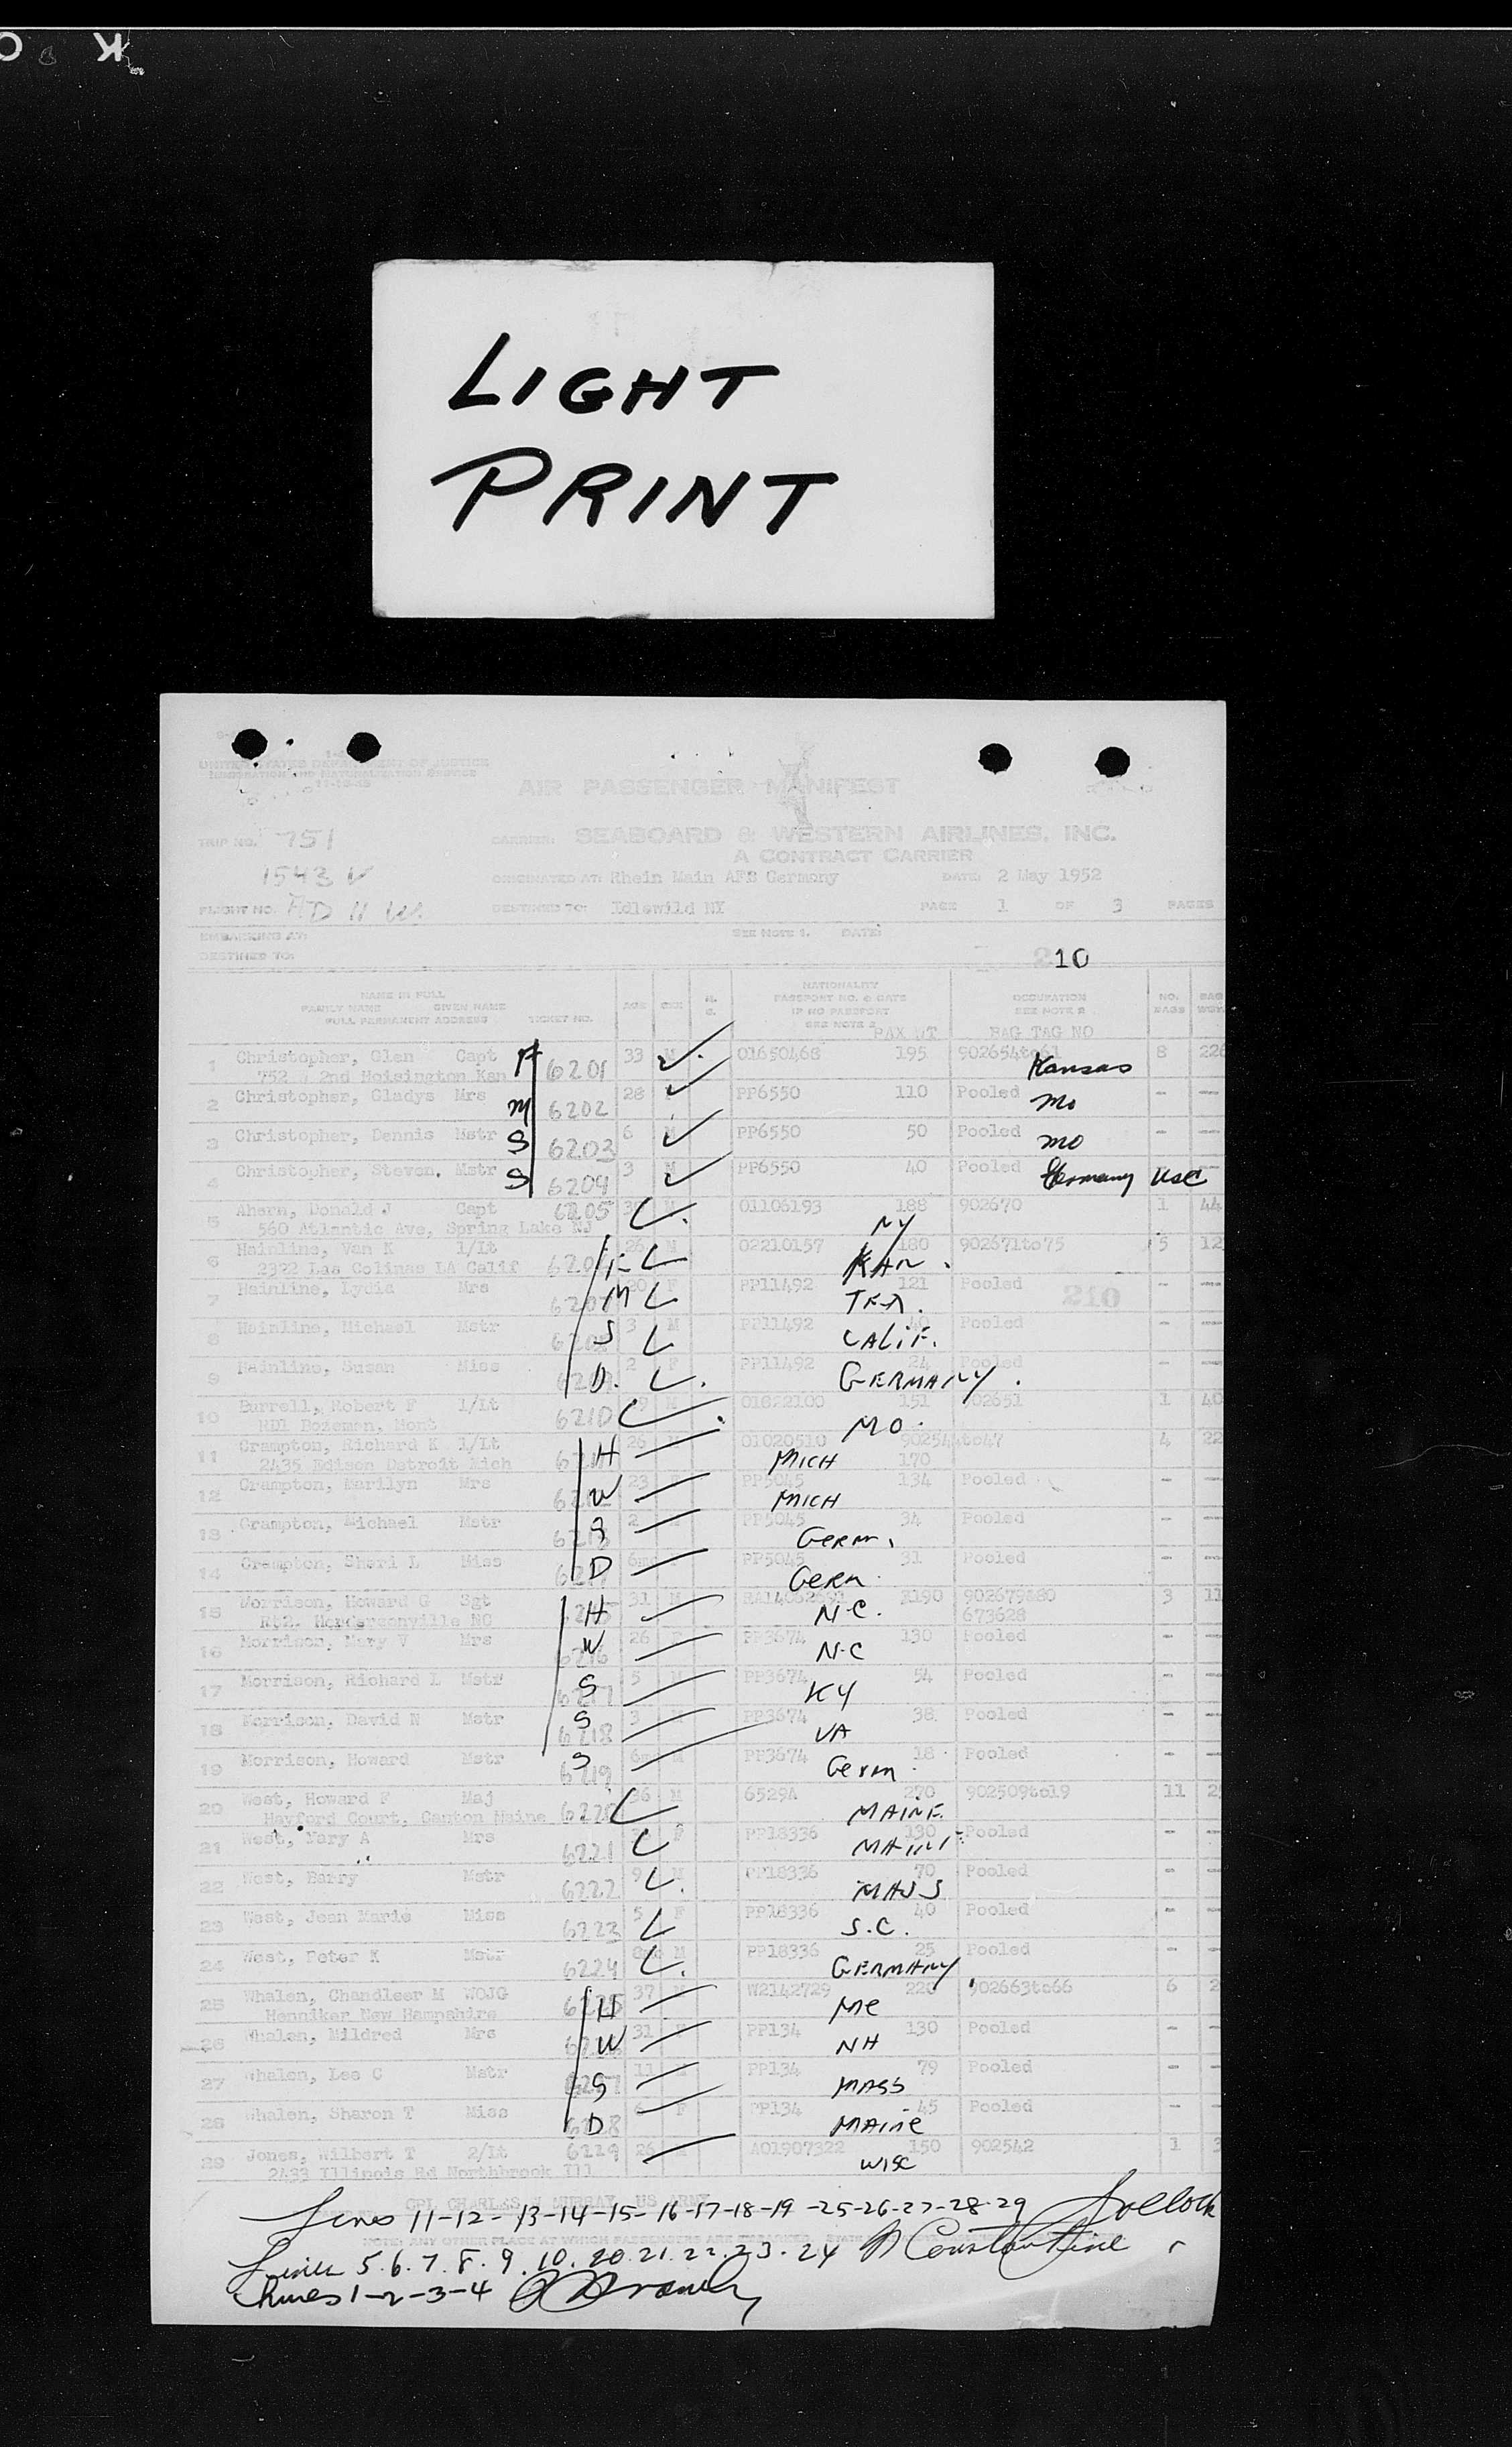 LIGHT
PRINT
UNITED STATES DEPARTMENT OF JUSTICE
IMMIGRATION AND NATURALIZATION SERVICE
AIR PASSENGER MANIFEST
TRIP NO. 751
CARRIER: SEABOARD & WESTERN AIRLINES, INC.
A CONTRACT CARRIER
1543 V
ORIGINATED AT: Rhein Main AFB Germany DATE: 2 May 1952
FLIGHT NO. DESTINED TO: Idlewild NY PAGE 1 OF 3 PAGES
EMBARKING AT: SEE NOTE 1. DATE:
DESTINED TO:
210
NAME IN FULL
FAMILY NAME GIVEN NAME
FULL PERMANENT ADDRESS TICKET NO. AGE SEX
NATIONALITY
PASSPORT NO. & DATE
IF NO PASSPORT
SEE NOTE 2 PAX WT
OCCUPATION
SEE NOTE 2
BAG TAG NO
NO. BAGS BAG WGT.
1 Christopher, Glen Capt 6201 33 M 01650468 195 902654to61 8 226
752 2nd Hoisington Kan Kansas
2 Christopher, Gladys Mrs M 6202 28 PP6550 110 Pooled - --
Mo
3 Christopher, Dennis Mstr S 6203 6 M PP6550 50 Pooled - --
Mo
4 Christopher, Steven. Mstr S 6204 3 M PP6550 40 Pooled -
Germany USC
5 Ahern, Donald J Capt 6205 01106193 188 902670 1 44
560 Atlantic Ave, Spring Lake NJ NY
6 Hainline, Van K 1/Lt 26 M 02210157 180 902671to75 5 12
2322 Las Colinas LA Calif KAN.
7 Hainline, Lydia Mrs M 20 F PP11492 121 Pooled - --
TEX.
210
8 Hainline, Michael Mstr S 3 M PP11492 40 Pooled - --
CALIF.
9 Hainline, Susan Miss D. 2 F PP11492 24 Pooled - --
GERMANY.
10 Burrell, Robert F 1/Lt 6210 M 01822100 151 902651 1 40
RD1 Bozeman, Mont MO.
11 Crampton, Richard K 1/Lt H 26 01020510 902544to47 4 22
2435 Edison Detroit Mich MICH 170
12 Crampton, Marilyn Mrs W 23 PP5045 134 Pooled - --
MICH
13 Crampton, Michael Mstr S 2 PP5045 34 Pooled - --
Germ.
14 Crampton, Sherl L Miss D 6m PP5045 31 Pooled - --
Germ.
15 Morrison, Howard G Sgt H 31 M 190 902679&80 3 11
Hendersonville NC N.C. 673628
16 Morrison, Mary V Mrs W 26 PP3674 130 Pooled - --
N.C
17 Morrison, Richard L Mstr S 5 M PP3674 54 Pooled - --
KY
18 Morrison, David N Mstr S 6218 3 M PP3674 38 Pooled - --
VA
19 Morrison, Howard Mstr S 6219 6m M PP3674 18 Pooled - --
Germ.
20 West, Howard F Maj 6220 36 M 6529A 270 902509to19 11 2
Hayford Court, Canton Maine MAINE
21 West, Mary A Mrs 6221 F PP18336 130 Pooled - --
MAINE
22 West, Barry Mstr 6222 9 M PP18336 70 Pooled - --
MASS
23 West, Jean Marie Miss 6223 5 F PP18336 40 Pooled - --
S.C.
24 West, Peter K Mstr 6224 M PP18336 25 Pooled - -
GERMANY
25 Whalen, Chandleer M WOJG H 37 M W2142729 220 902663to66 6 2
Henniker New Hampshire Me
26 Whalen, Mildred Mrs W 31 F PP134 130 Pooled - -
NH
27 Whalen, Lee C Mstr S 11 PP134 79 Pooled - -
MASS
28 Whalen, Sharon T Miss D 6 F PP134 45 Pooled - -
MAINE
29 Jones, Wilbert T 2/Lt 6229 26 A01907322 150 902542 1 3
2433 Illinois Rd Northbrook Ill WISC
CPL CHARLES W MURRAY US ARMY
Lines 11-12-13-14-15-16-17-18-19-25-26-27-28-29
Lines 5.6.7.8.9.10.20.21.22.23.24 Constantine
Lines 1-2-3-4